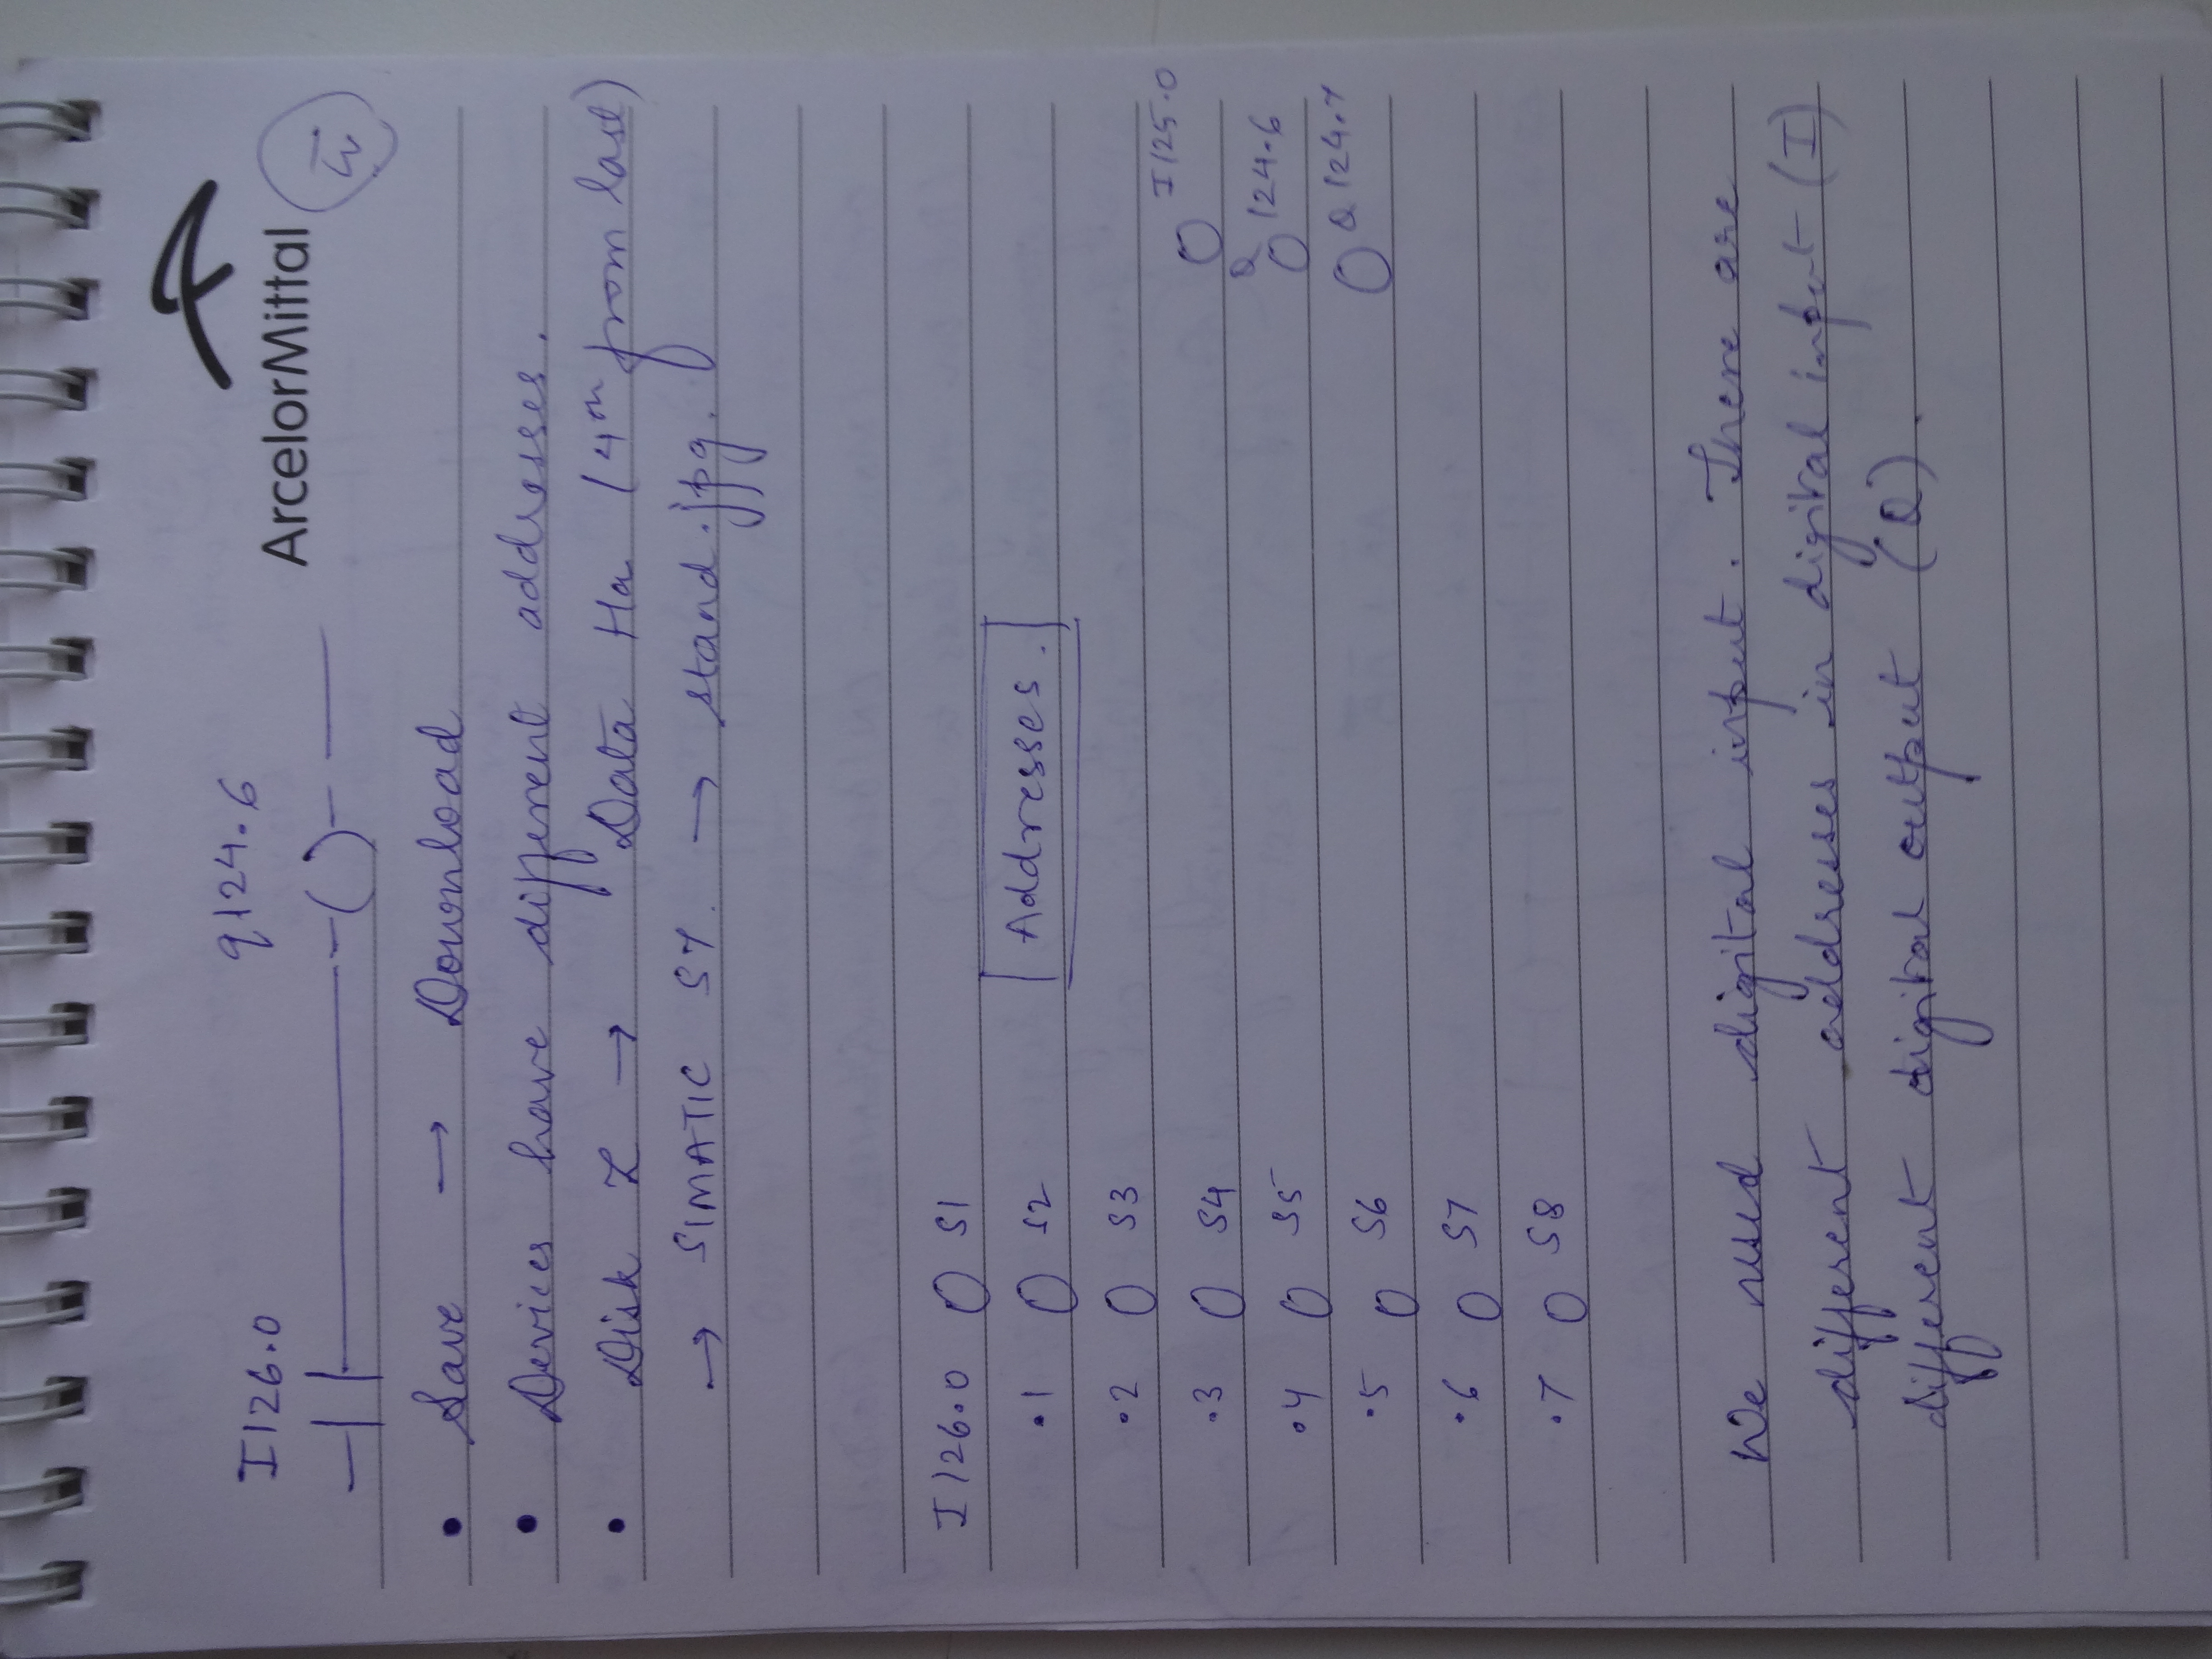 ArcelorMittal
I126.0 q124.6
—| |———( )—
• Save → Download
• Devices have different addresses.
• Disk Z → Data Ha (4th from last)
→ SIMATIC S7 → stand.jpg.
I 126.0 O S1
.1 O S2 Addresses.
.2 O S3
.3 O S4 O I125.0
.4 O S5 O Q124.6
.5 O S6 O Q124.7
.6 O S7
.7 O S8
We used digital input. There are
different addresses in digital input (I)
different digital output (Q).